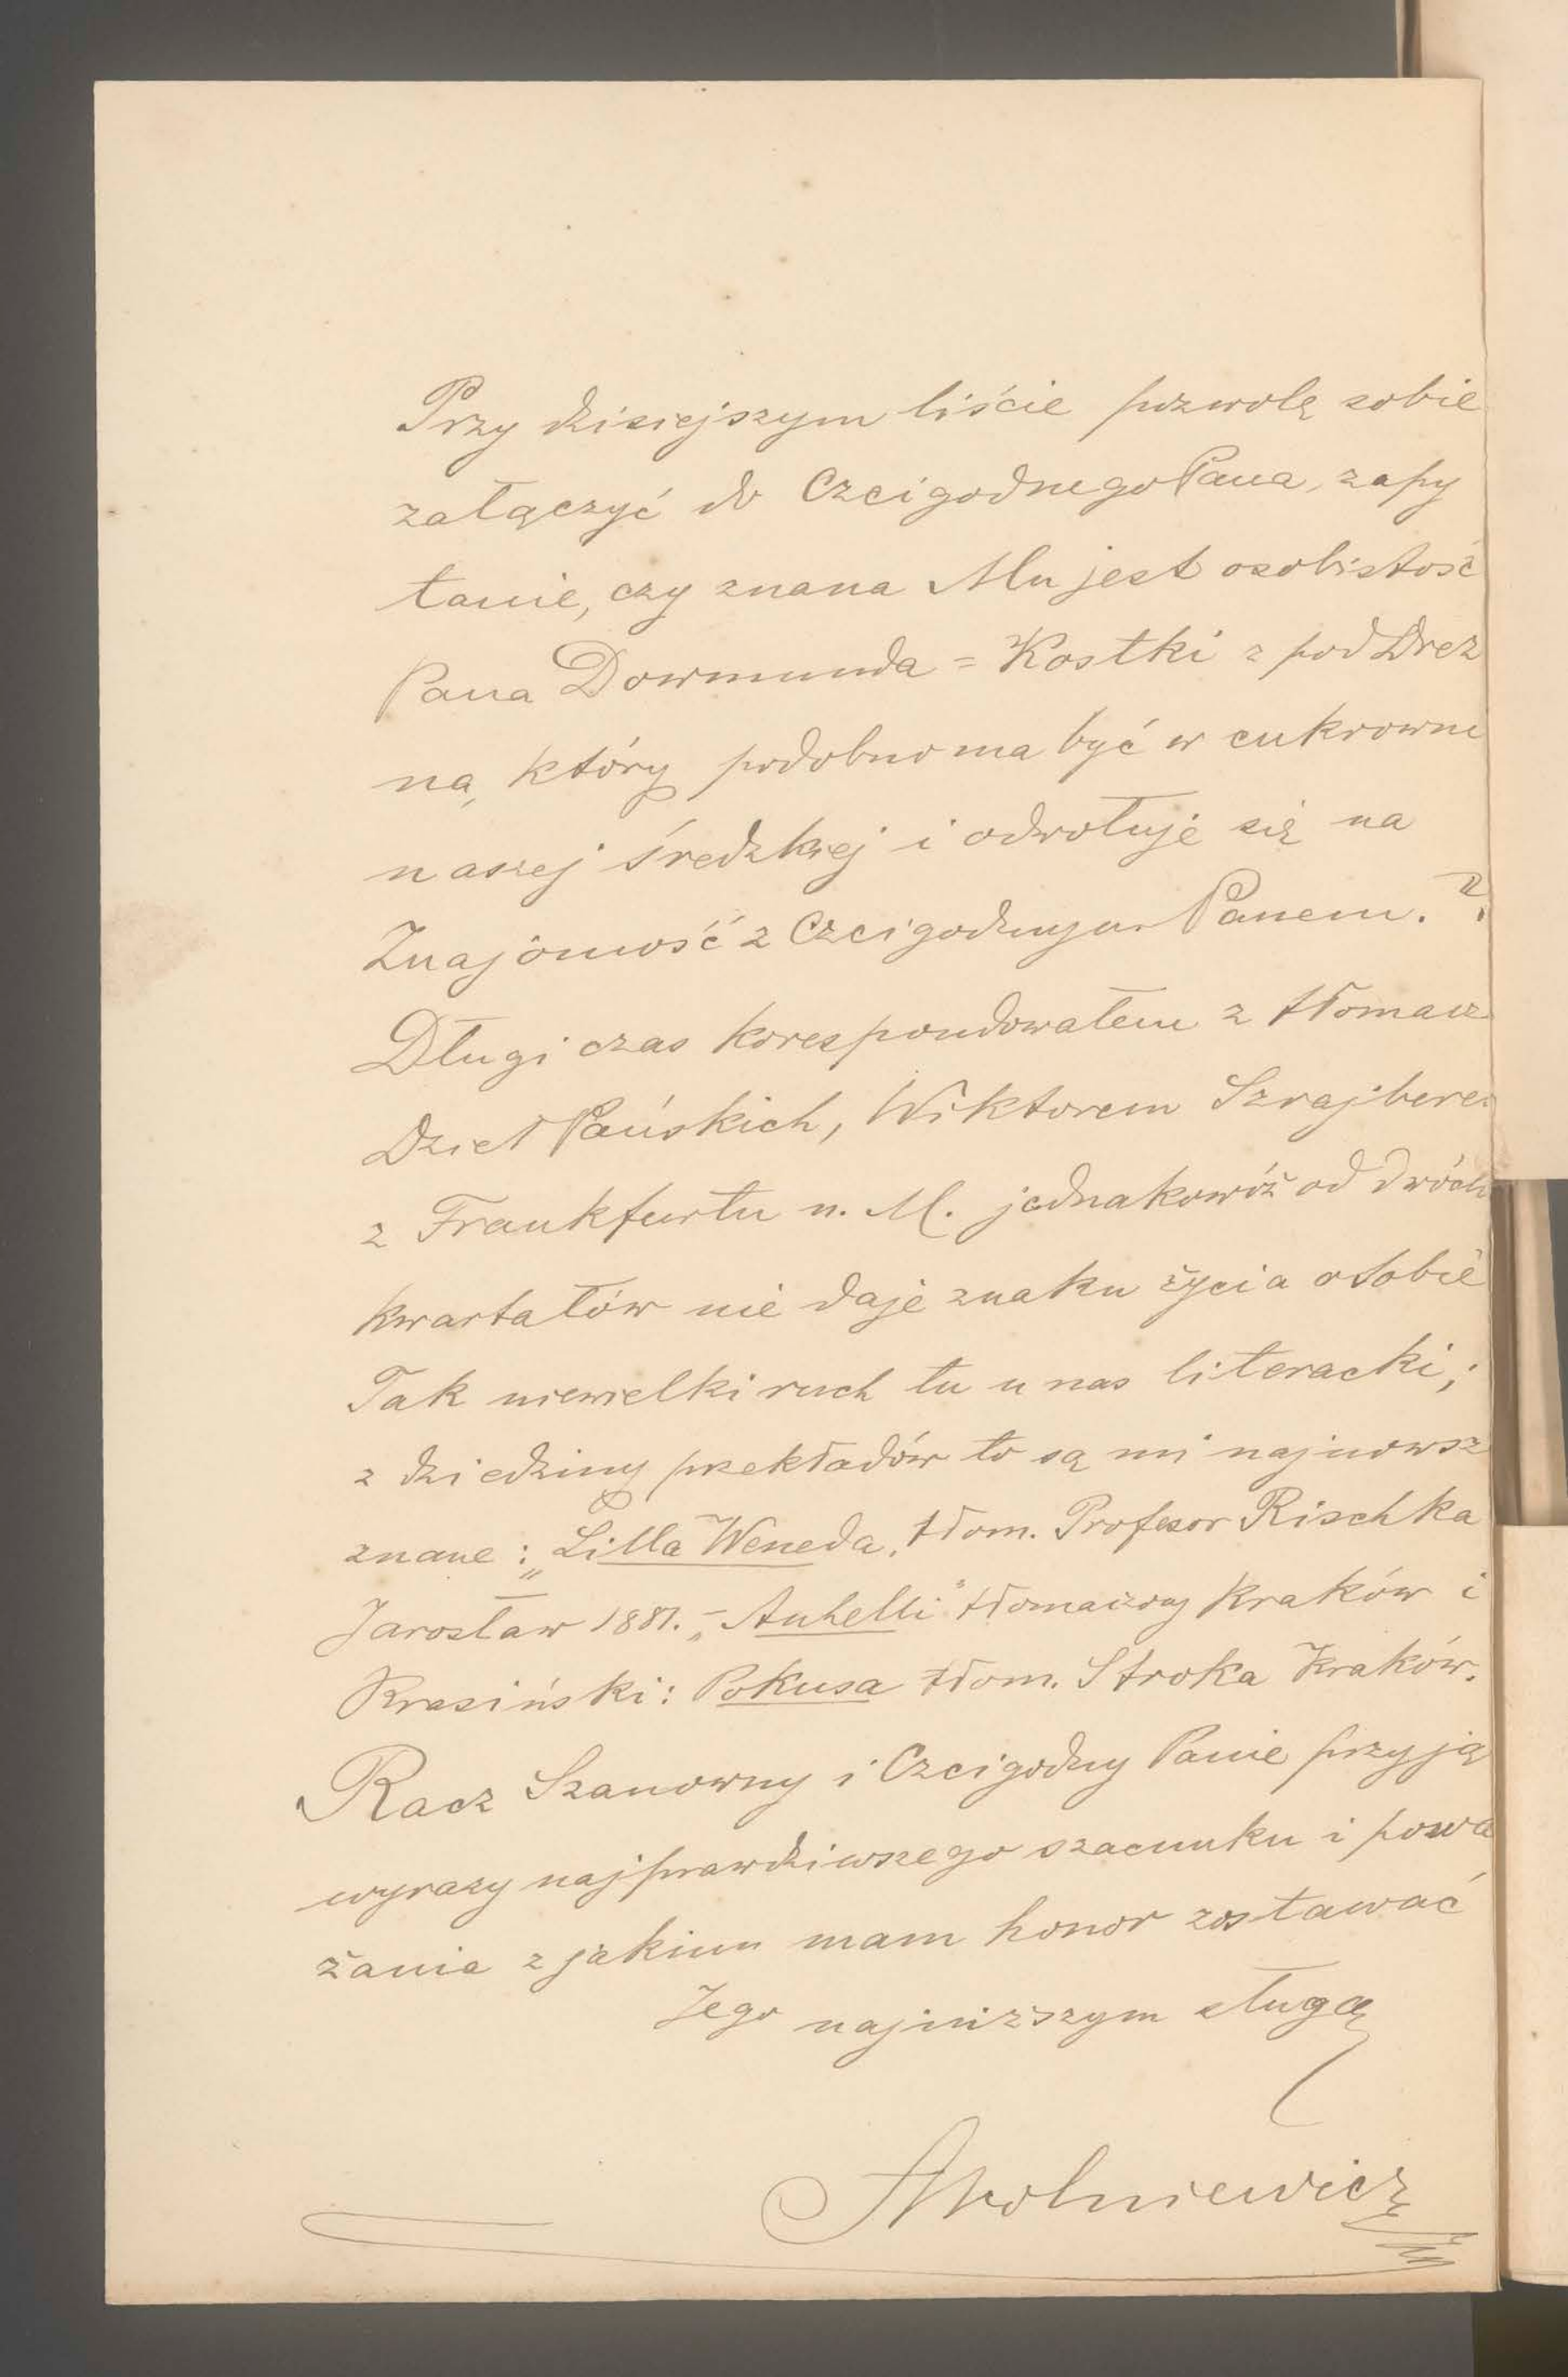 Przy dzisiejszym liście pozwolę sobie
załączyć do Czcigodnego Pana, zapy
tanie, czy znana Mu jest osobistość
Pana Dowmunda = Kostki z pod Drez
na, który podobno ma być w cukrowni
naszej średzkiej i odwołuje się na
Znajomość z Czcigodnym Panem.?
Długi czas korespondowałem z tłomacz
Dzieł Pańskich, Wiktorem Szrajbere
z Frankfurtu n. M. jednakowóż od dwóch
kwartałów nie daje znaku życia o sobie
Tak niewielki ruch tu u nas literacki;
z dziedziny przekładów to są mi najnowsz
znane: „Lilla Weneda, tłom. Profesor Rischka
Jarosław 1881. – „Anhelli" tłomaczony Kraków i
Krasiński: Pokusa tłom. Stroka Kraków.
Racz Szanowny i Czcigodny Panie przyją
wyrazy najprawdziwszego szacunku i powa
żania z jakiem mam honor zostawać
Jego najniższym sługą